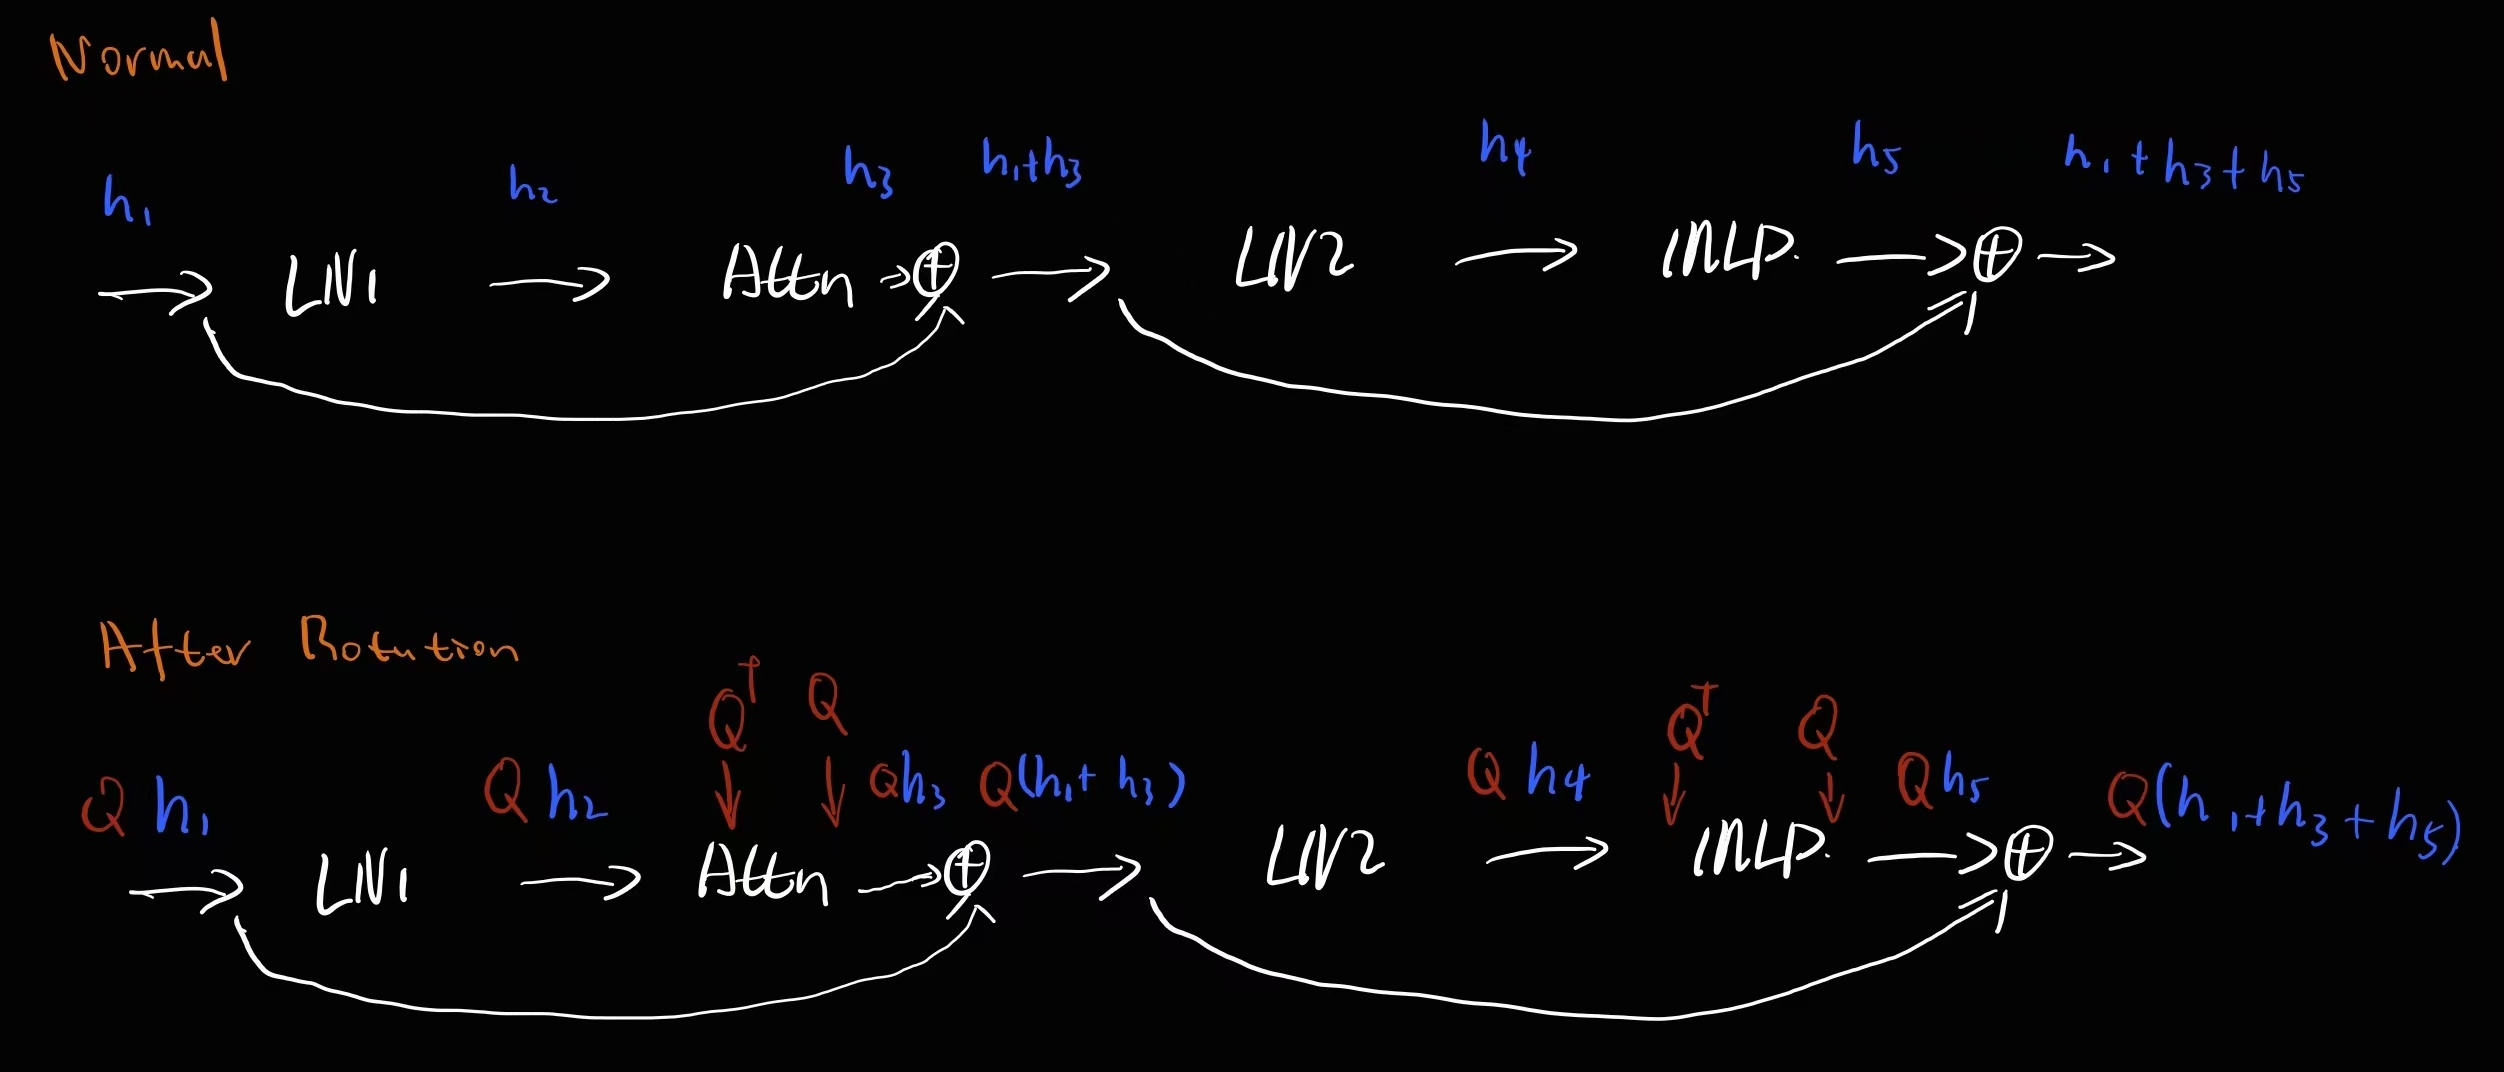 Normal
h₁ h₂ h₃ h₁+h₃ h₄ h₅ h₁+h₃+h₅
LN1 Attn + LN2 MLP +
After Rotation
Qᵀ Q Qᵀ Q
Qh₁ Qh₂ Qh₃ Q(h₁+h₃) Qh₄ Qh₅ Q(h₁+h₃+h₅)
LN1 Attn + LN2 MLP +